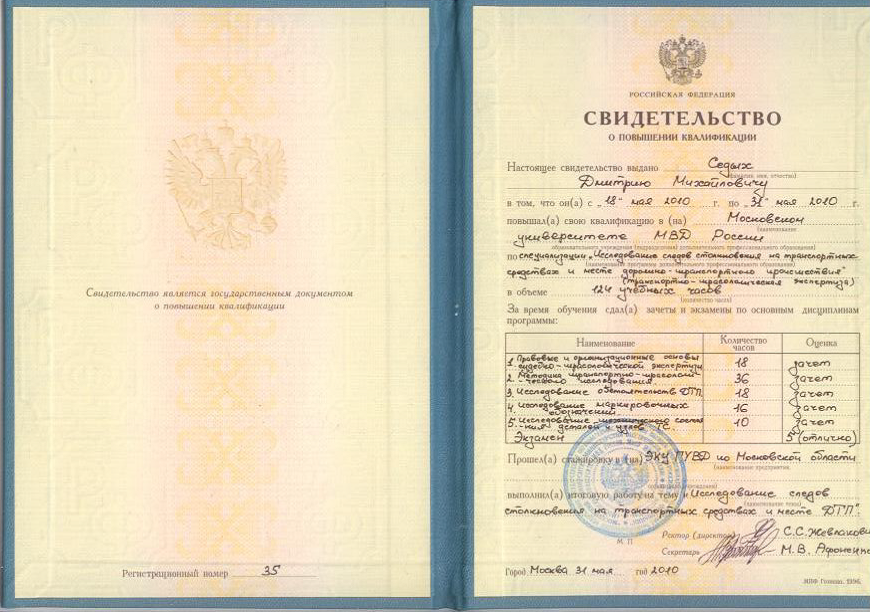 Свидетельство является государственным документом
о повышении квалификации
Регистрационный номер 35
РОССИЙСКАЯ ФЕДЕРАЦИЯ
СВИДЕТЕЛЬСТВО
О ПОВЫШЕНИИ КВАЛИФИКАЦИИ
Настоящее свидетельство выдано Седых
(фамилия, имя, отчество)
Дмитрию Михайловичу
в том, что он(а) с „18“ мая 2010 г. по „31“ мая 2010 г.
повышал(а) свою квалификацию в (на) Московском
(наименование
университете МВД России
образовательного учреждения (подразделения) дополнительного профессионального образования)
по специализации „Исследование следов столкновения на транспортных
(наименование программы дополнительного профессионального образования)
средствах и месте дорожно-транспортного происшествия"
(транспортно-трасологическая экспертиза)
в объеме 124 учебных часов
(количество часов)
За время обучения сдал(а) зачеты и экзамены по основным дисциплинам
программы:
Наименование Количество часов Оценка
1. Правовые и организационные основы
судебно-трасологической экспертизы 18 зачет
2. Методика транспортно-трасологи-
ческого исследования 36 зачет
3. Исследование обстоятельств ДТП 18 зачет
4. Исследование маркировочных
обозначений 16 зачет
5. Исследование технического состоя-
ния деталей и узлов ТС. 10 зачет
Экзамен 5 (отлично)
Прошел(а) стажировку в (на) ЭКУ ГУВД по Московской области
(наименование предприятия,
выполнил(а) итоговую работу на тему „Исследование следов
(наименование темы)
столкновения на транспортных средствах и месте ДТП".
Ректор (директор) С.С. Жевлакович
М. П.
Секретарь М.В. Афонени
Город Москва 31 мая год 2010
МПФ Гознака. 1996.